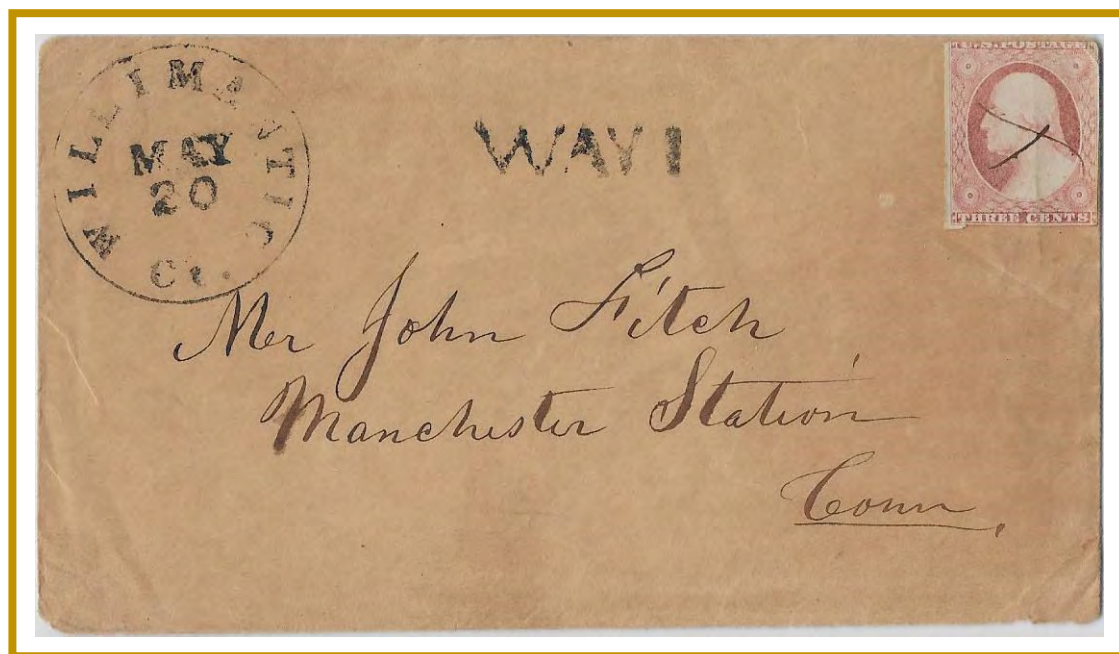 WILLIMANTIC
MAY
20
Ct.
WAY 1
U.S. POSTAGE
THREE CENTS
Mr John Fitch
Manchester Station
Conn.